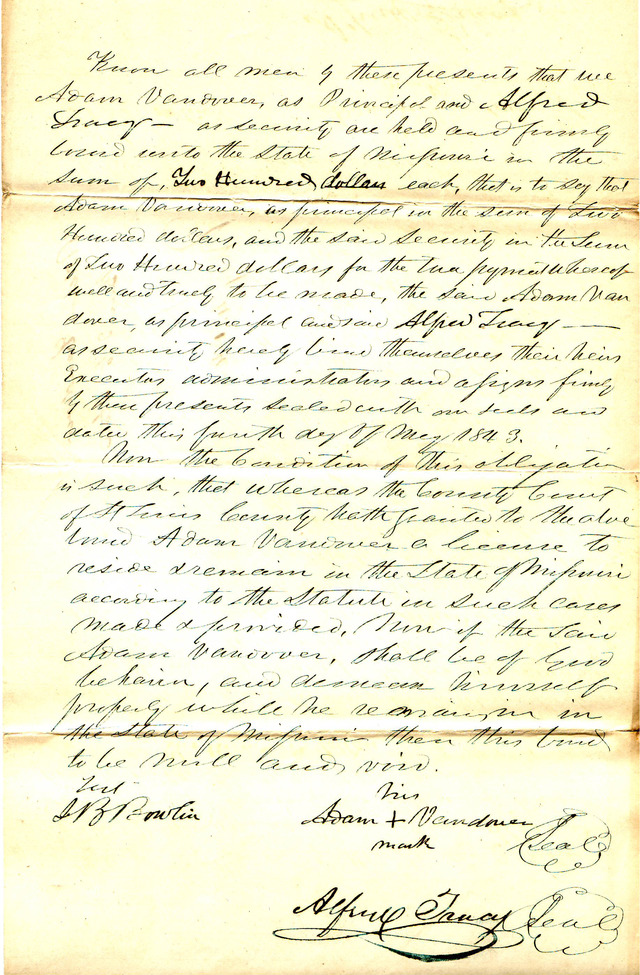 Know all men by these presents that we
Adam Vandover, as Principal and Alfred
Tracy — as security are held and firmly
bound unto the State of Missouri in the
sum of, Two Hundred dollars each, that is to say that
Adam Vandover, as principal in the sum of Two
Hundred dollars, and the said security in the Sum
of Two Hundred dollars for the true payment whereof
well and truly to be made, the said Adam Van
dover, as principal and said Alfred Tracy —
as security hereby bind themselves their heirs
Executors administrators and assigns firmly
by these presents sealed with our seals and
dated this fourth day of May 1843.
Now the Condition of this obligation
is such, that whereas the County Court
of St Louis County hath granted to the above
bound Adam Vandover a license to
reside & remain in the State of Missouri
according to the Statute in such cases
made & provided, Now if the said
Adam Vandover, shall be of Good
behavior, and demean himself
properly while he remains in
the State of Missouri then this bond
to be null and void.
Test
J B Bowlin
his
Adam + Vandover Seal
mark
Alfred Tracy Seal